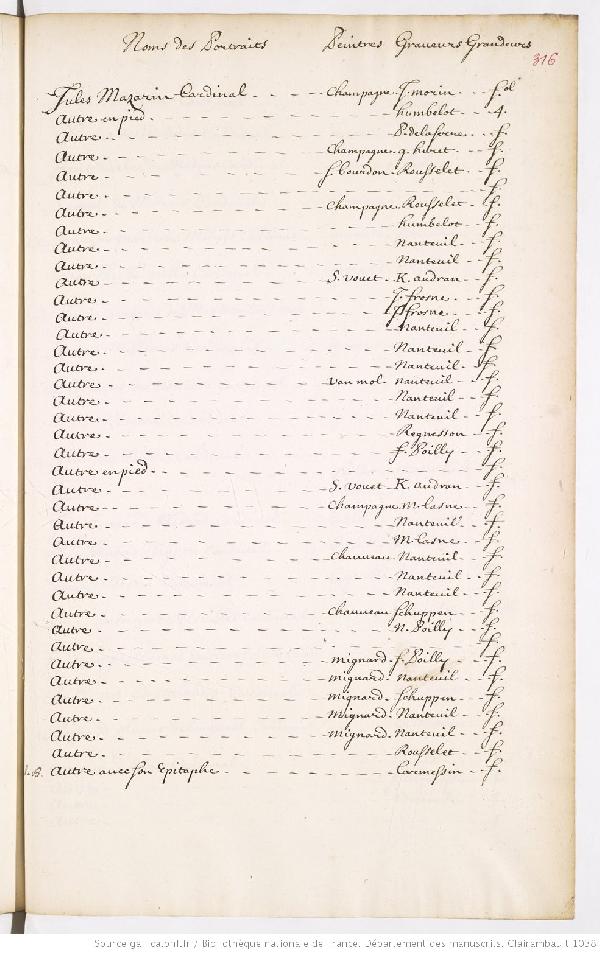 Noms des Portraits Peintres Graveurs Grandeurs
316
Jules Mazarin Cardinal - - - - Champagne J. morin - - f.ol
Autre en pied - - - - humbelot - - 4.
Autre - - - - P. delaserre - - f.
Autre - - - - Champagne g. huret - - f.
Autre - - - - f. bourdon Rousselet - - f.
Autre - - - - f.
Autre - - - - Champagne Rousselet - - f.
Autre - - - - humbelot - - f.
Autre - - - - Nanteuil - - f.
Autre - - - - Nanteuil - - f.
Autre - - - - S. vouet - K. audran - - f.
Autre - - - - J. frosne - - f.
Autre - - - - J frosne - - f.
Autre - - - - Nanteuil - - f.
Autre - - - - Nanteuil - - f.
Autre - - - - Nanteuil - - f.
Autre - - - - Van mol - nanteuil - - f.
Autre - - - - Nanteuil - - f.
Autre - - - - Nanteuil - - f.
Autre - - - - Regnesson - - f.
Autre - - - - f. Poilly - - f.
Autre en pied - - - - f.
Autre - - - - S. vouet - K. audran - - f.
Autre - - - - Champagne M. lasne - - f.
Autre - - - - Nanteuil - - f.
Autre - - - - M. lasne - - f.
Autre - - - - Chauveau Nanteuil - - f.
Autre - - - - Nanteuil - - f.
Autre - - - - Nanteuil - - f.
Autre - - - - Chauveau Schuppen - - f.
Autre - - - - N. Poilly - - f.
Autre - - - - f.
Autre - - - - mignard - f. Poilly - - f.
Autre - - - - mignard - Nanteuil - - f.
Autre - - - - mignard - Schuppen - - f.
Autre - - - - Mignard - Nanteuil - - f.
Autre - - - - mignard - Nanteuil - - f.
Autre - - - - Rousselet - - f.
Autre avec son Epitaphe - - - - Laremessin - - f.
Source gallica.bnf.fr / Bibliothèque nationale de France. Département des manuscrits. Clairambault 1038